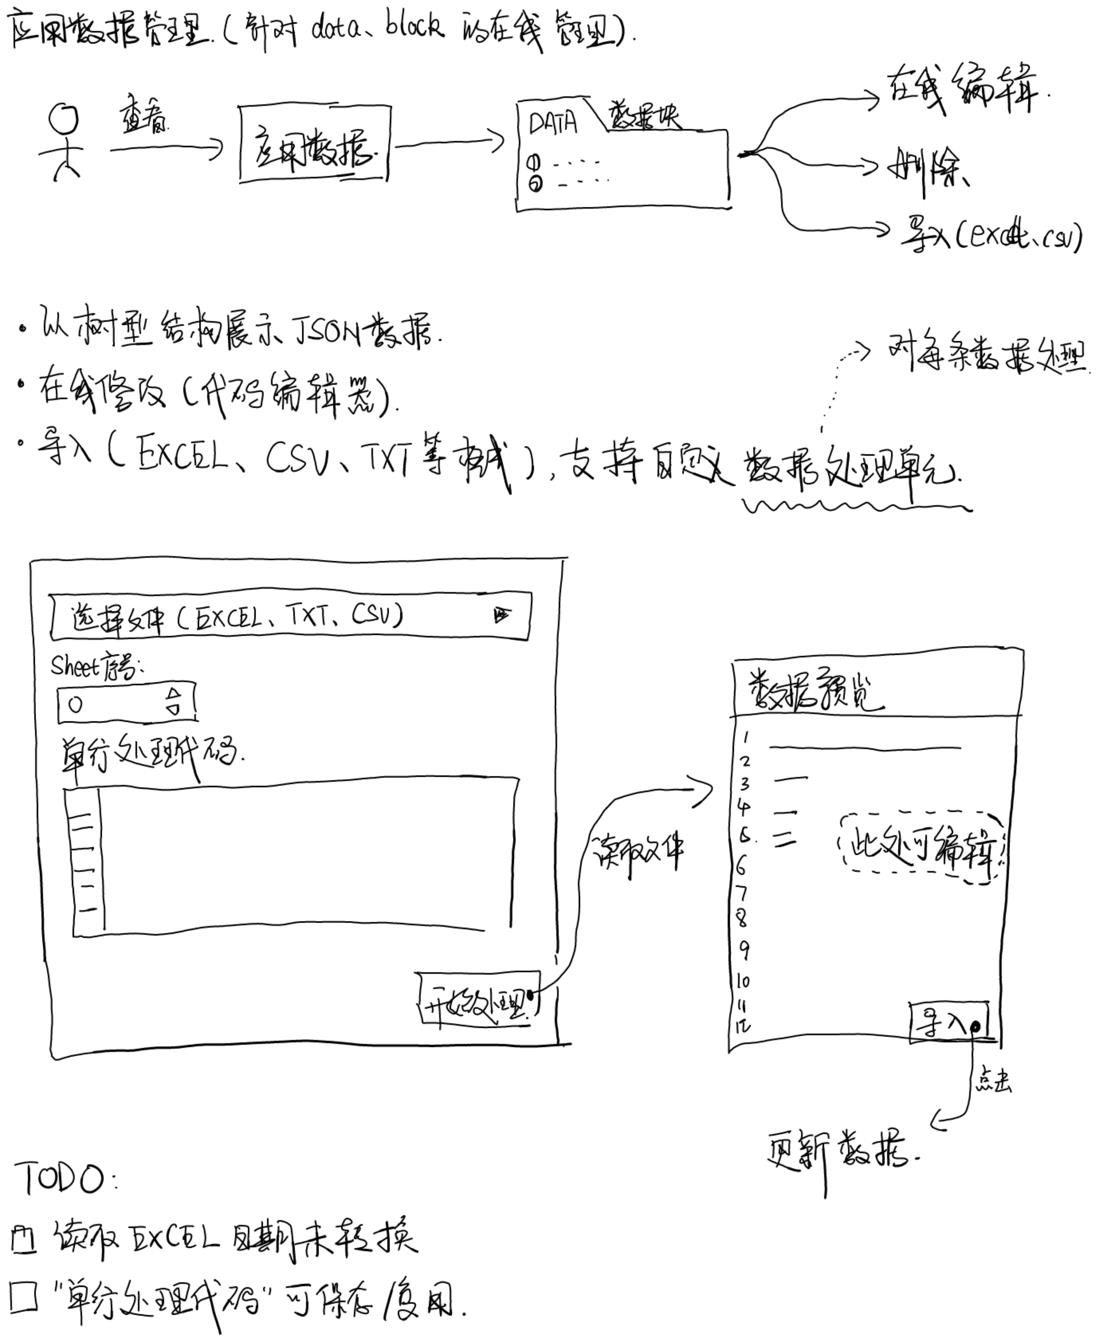 应用数据管理.(针对 data、block 的在线管理).
查看
应用数据.
DATA
数据块
① ....
② ....
在线编辑.
删除
导入(excel、csv)
·从树型结构展示JSON数据.
·在线修改(代码编辑器).
·导入(EXCEL、CSV、TXT等格式),支持自定义数据处理单元.
对每条数据处理
选择文件(EXCEL、TXT、CSV)
Sheet序号:
0
单行处理代码.
开始处理
读取文件
数据预览
1
2
3
4
5.
6
7
8
9
10
11
12
此处可编辑
导入
点击
更新数据.
TODO:
读取EXCEL日期未转换
"单行处理代码"可保存/复用.